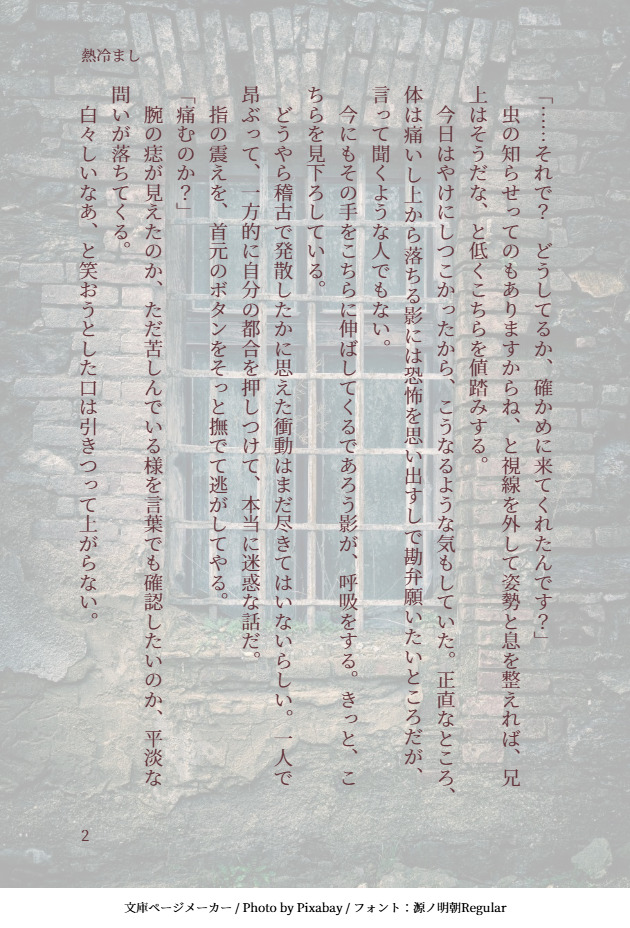 熱冷まし
「……それで？　どうしてるか、確かめに来てくれたんです？」
　虫の知らせってのもありますからね、と視線を外して姿勢と息を整えれば、兄
上はそうだな、と低くこちらを値踏みする。
　今日はやけにしつこかったから、こうなるような気もしていた。正直なところ、
体は痛いし上から落ちる影には恐怖を思い出すしで勘弁願いたいところだが、
言って聞くような人でもない。
　今にもその手をこちらに伸ばしてくるであろう影が、呼吸をする。きっと、こ
ちらを見下ろしている。
　どうやら稽古で発散したかに思えた衝動はまだ尽きてはいないらしい。一人で
昂ぶって、一方的に自分の都合を押しつけて、本当に迷惑な話だ。
　指の震えを、首元のボタンをそっと撫でて逃がしてやる。
「痛むのか？」
　腕の痣が見えたのか、ただ苦しんでいる様を言葉でも確認したいのか、平淡な
問いが落ちてくる。
　白々しいなあ、と笑おうとした口は引きつって上がらない。
2
文庫ページメーカー / Photo by Pixabay / フォント：源ノ明朝Regular